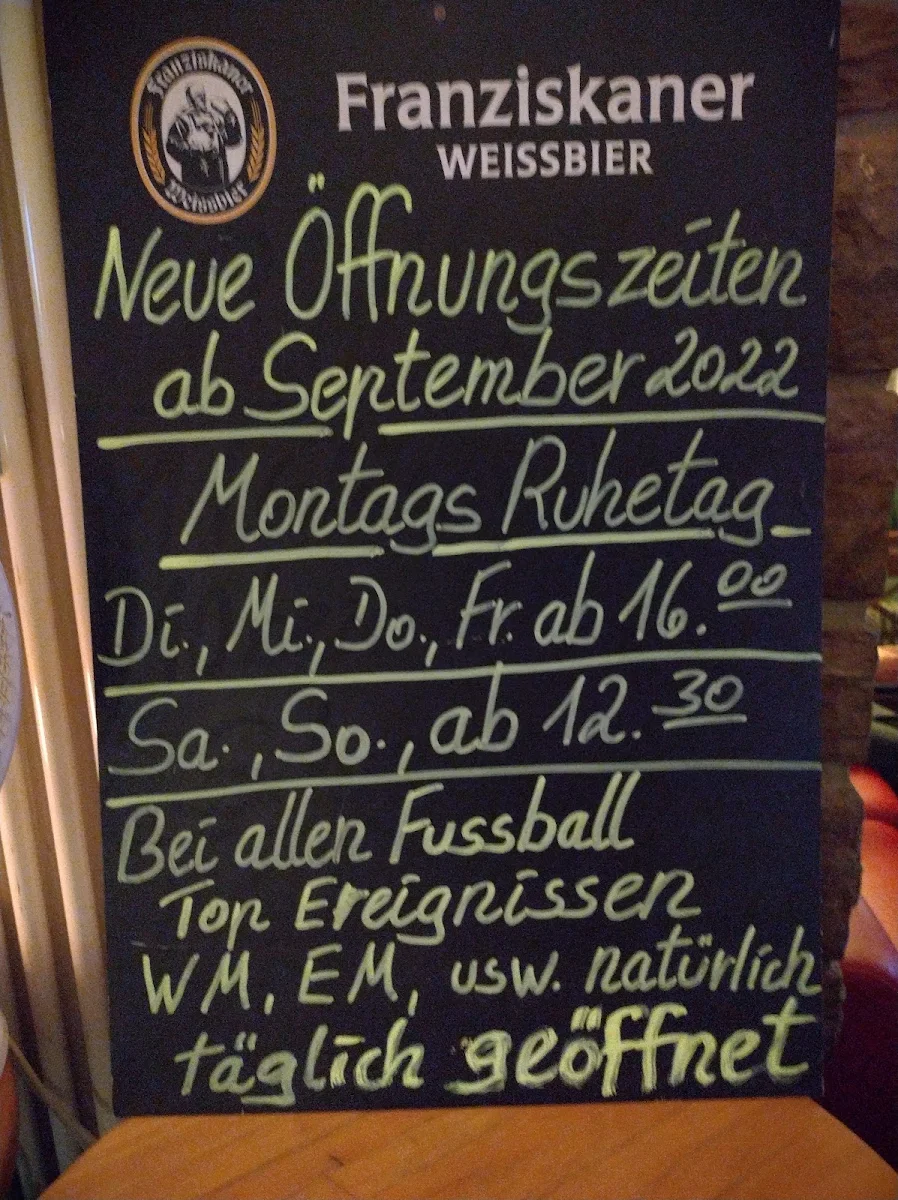 Franziskaner
Weissbier
Franziskaner
WEISSBIER
Neue Öffnungszeiten
ab September 2022
Montags Ruhetag
Di., Mi., Do., Fr. ab 16.00
Sa., So., ab 12.30
Bei allen Fussball
Top Ereignissen
WM, EM, usw. natürlich
täglich geöffnet